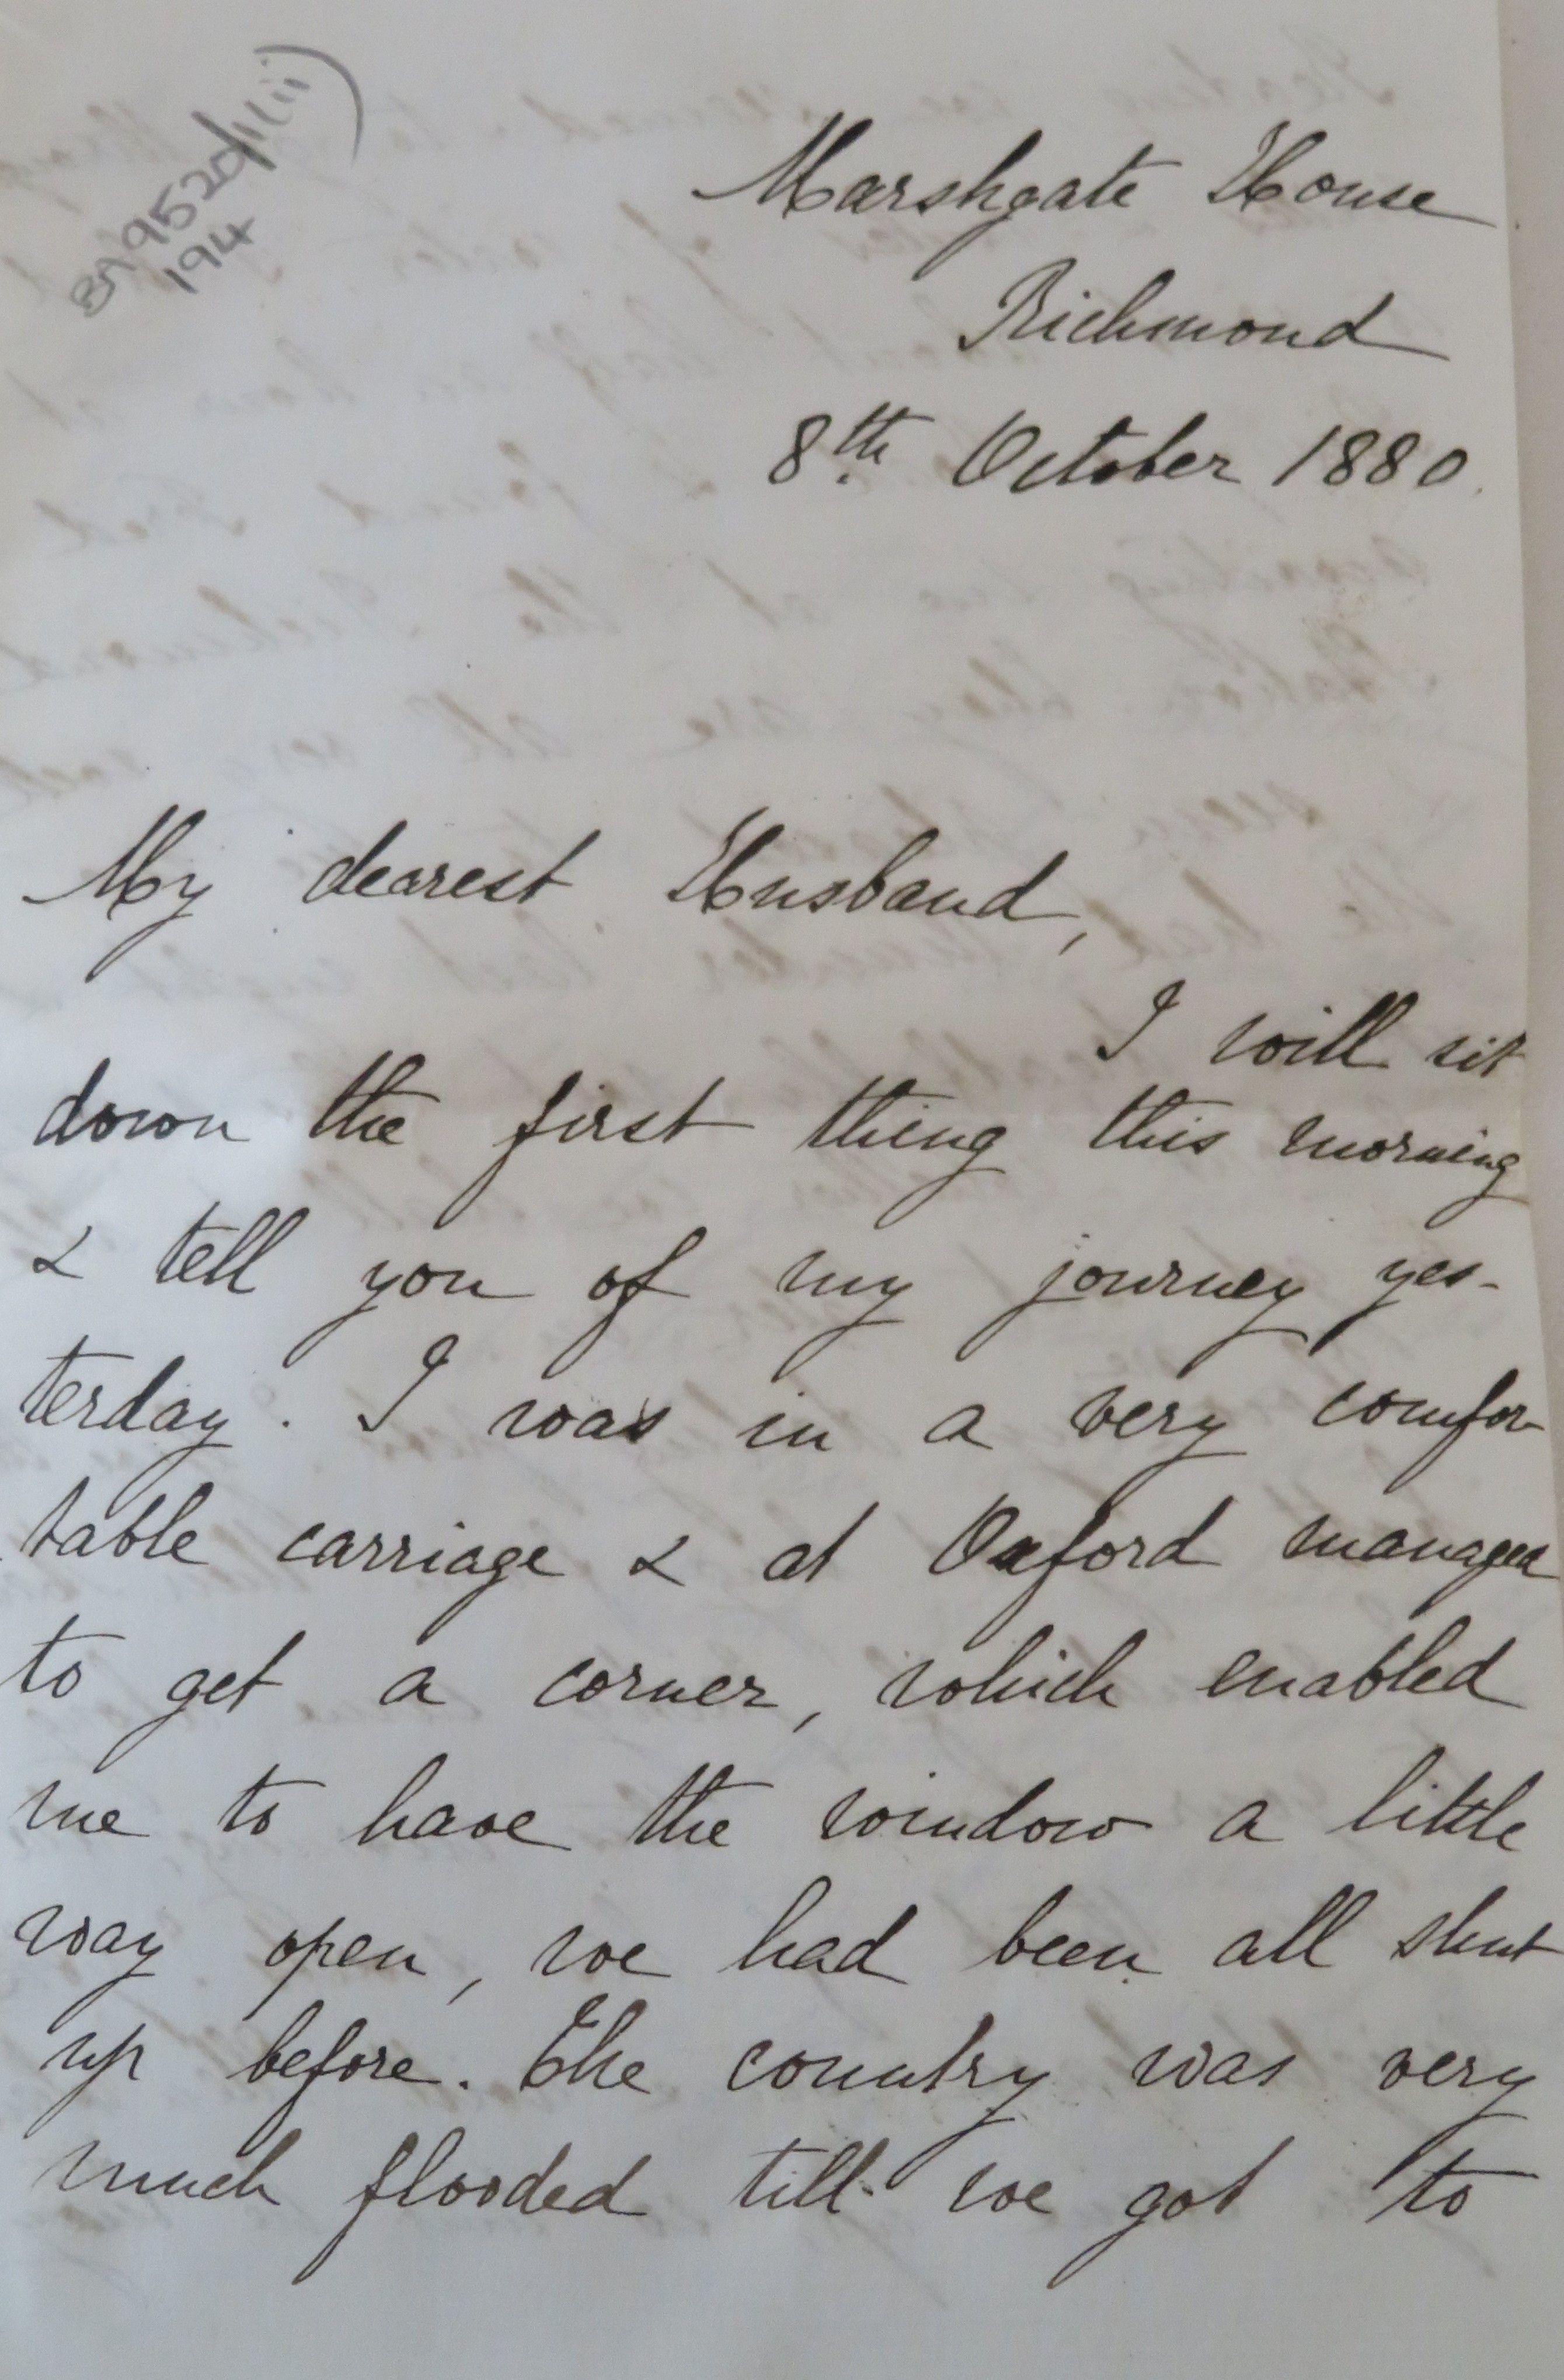 BA9520/1(ii)
194
Marshgate House
Richmond
8th October 1880.
My dearest Husband,
I will sit
down the first thing this morning
& tell you of my journey yes-
terday. I was in a very comfor-
table carriage & at Oxford managed
to get a corner, which enabled
me to have the window a little
way open, we had been all shut
up before. The country was very
much flooded till we got to